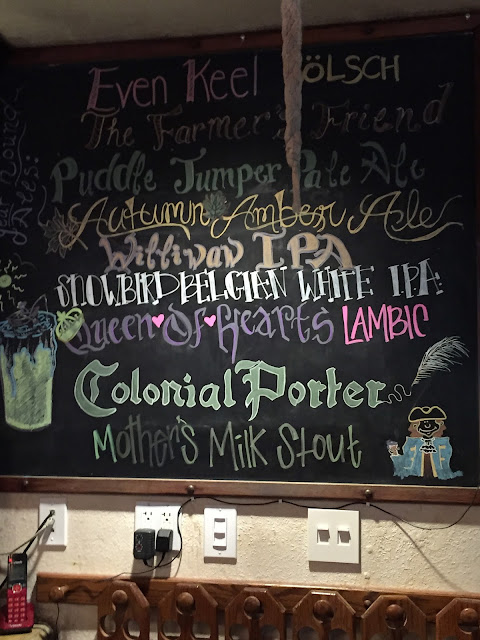 Even Keel KÖLSCH
The Farmer's Friend
Puddle Jumper Pale Ale
Autumn Amber Ale
Williwaw IPA
SNOWBIRD BELGIAN WHITE IPA
Queen Of Hearts LAMBIC
Colonial Porter
Mother's Milk Stout
Year Round
Ales: